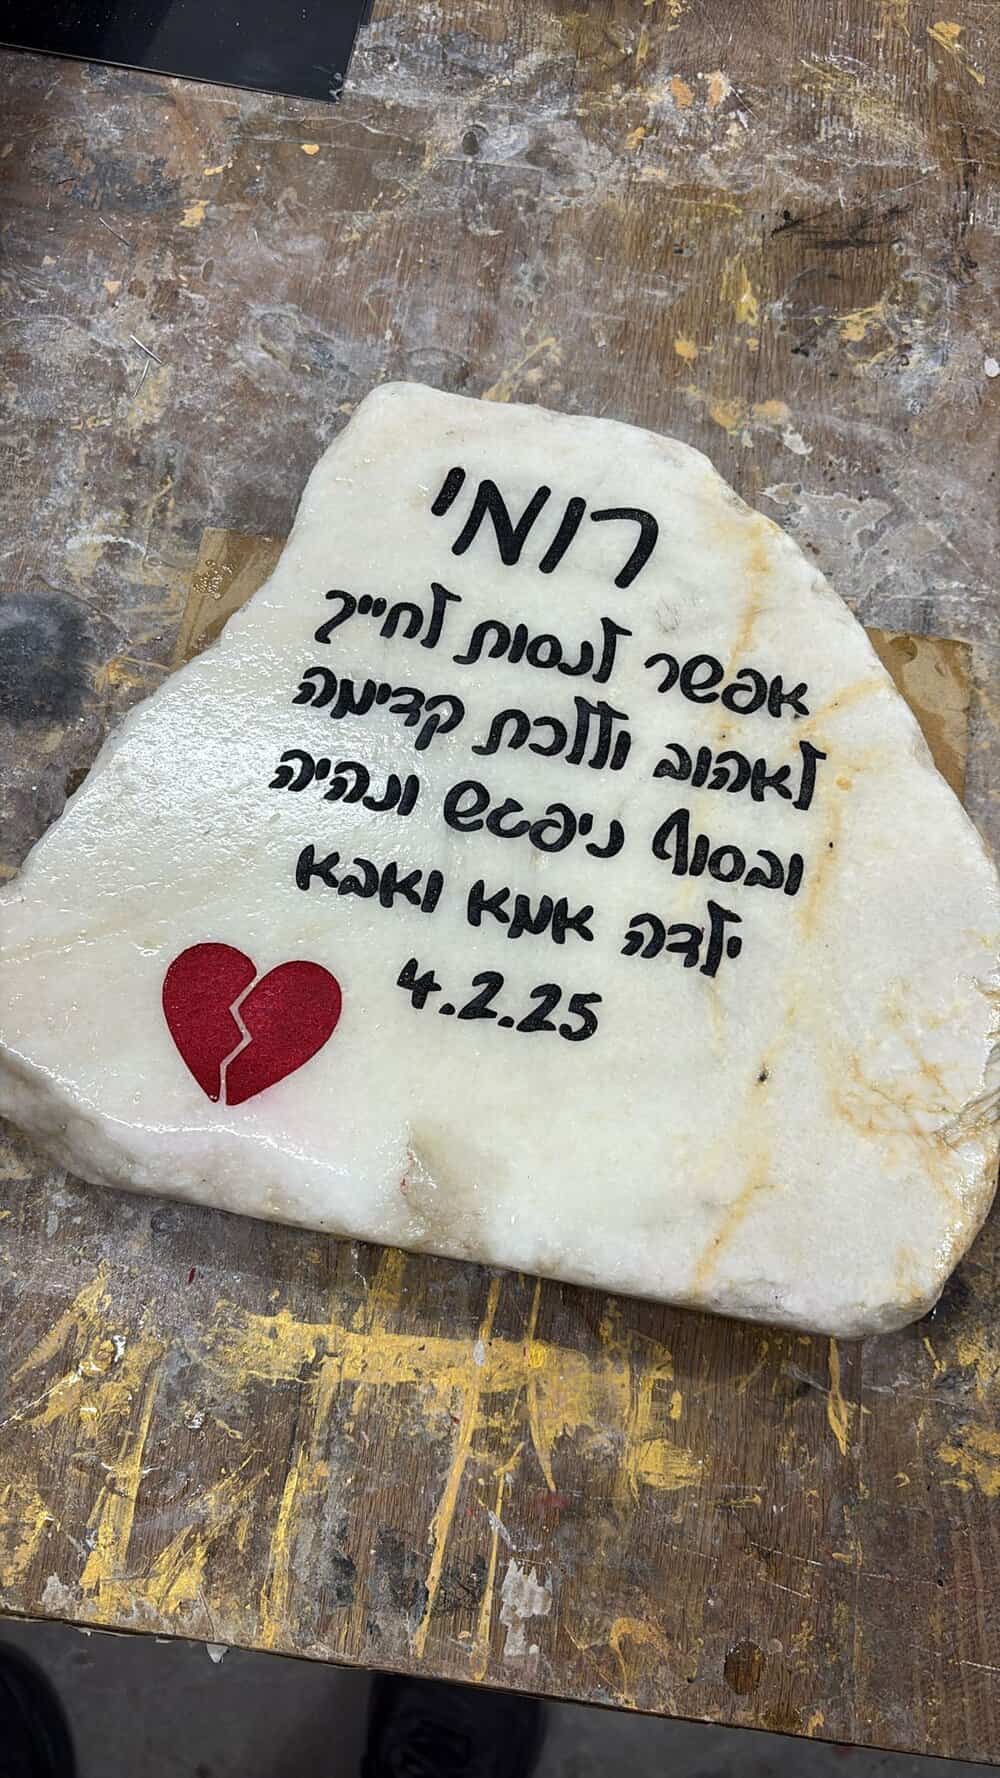 רומי
אפשר לנסות לחייך
לאהוב וללכת קדימה
ובסוף ניפגש ונהיה
ילדה אמא ואבא
4.2.25